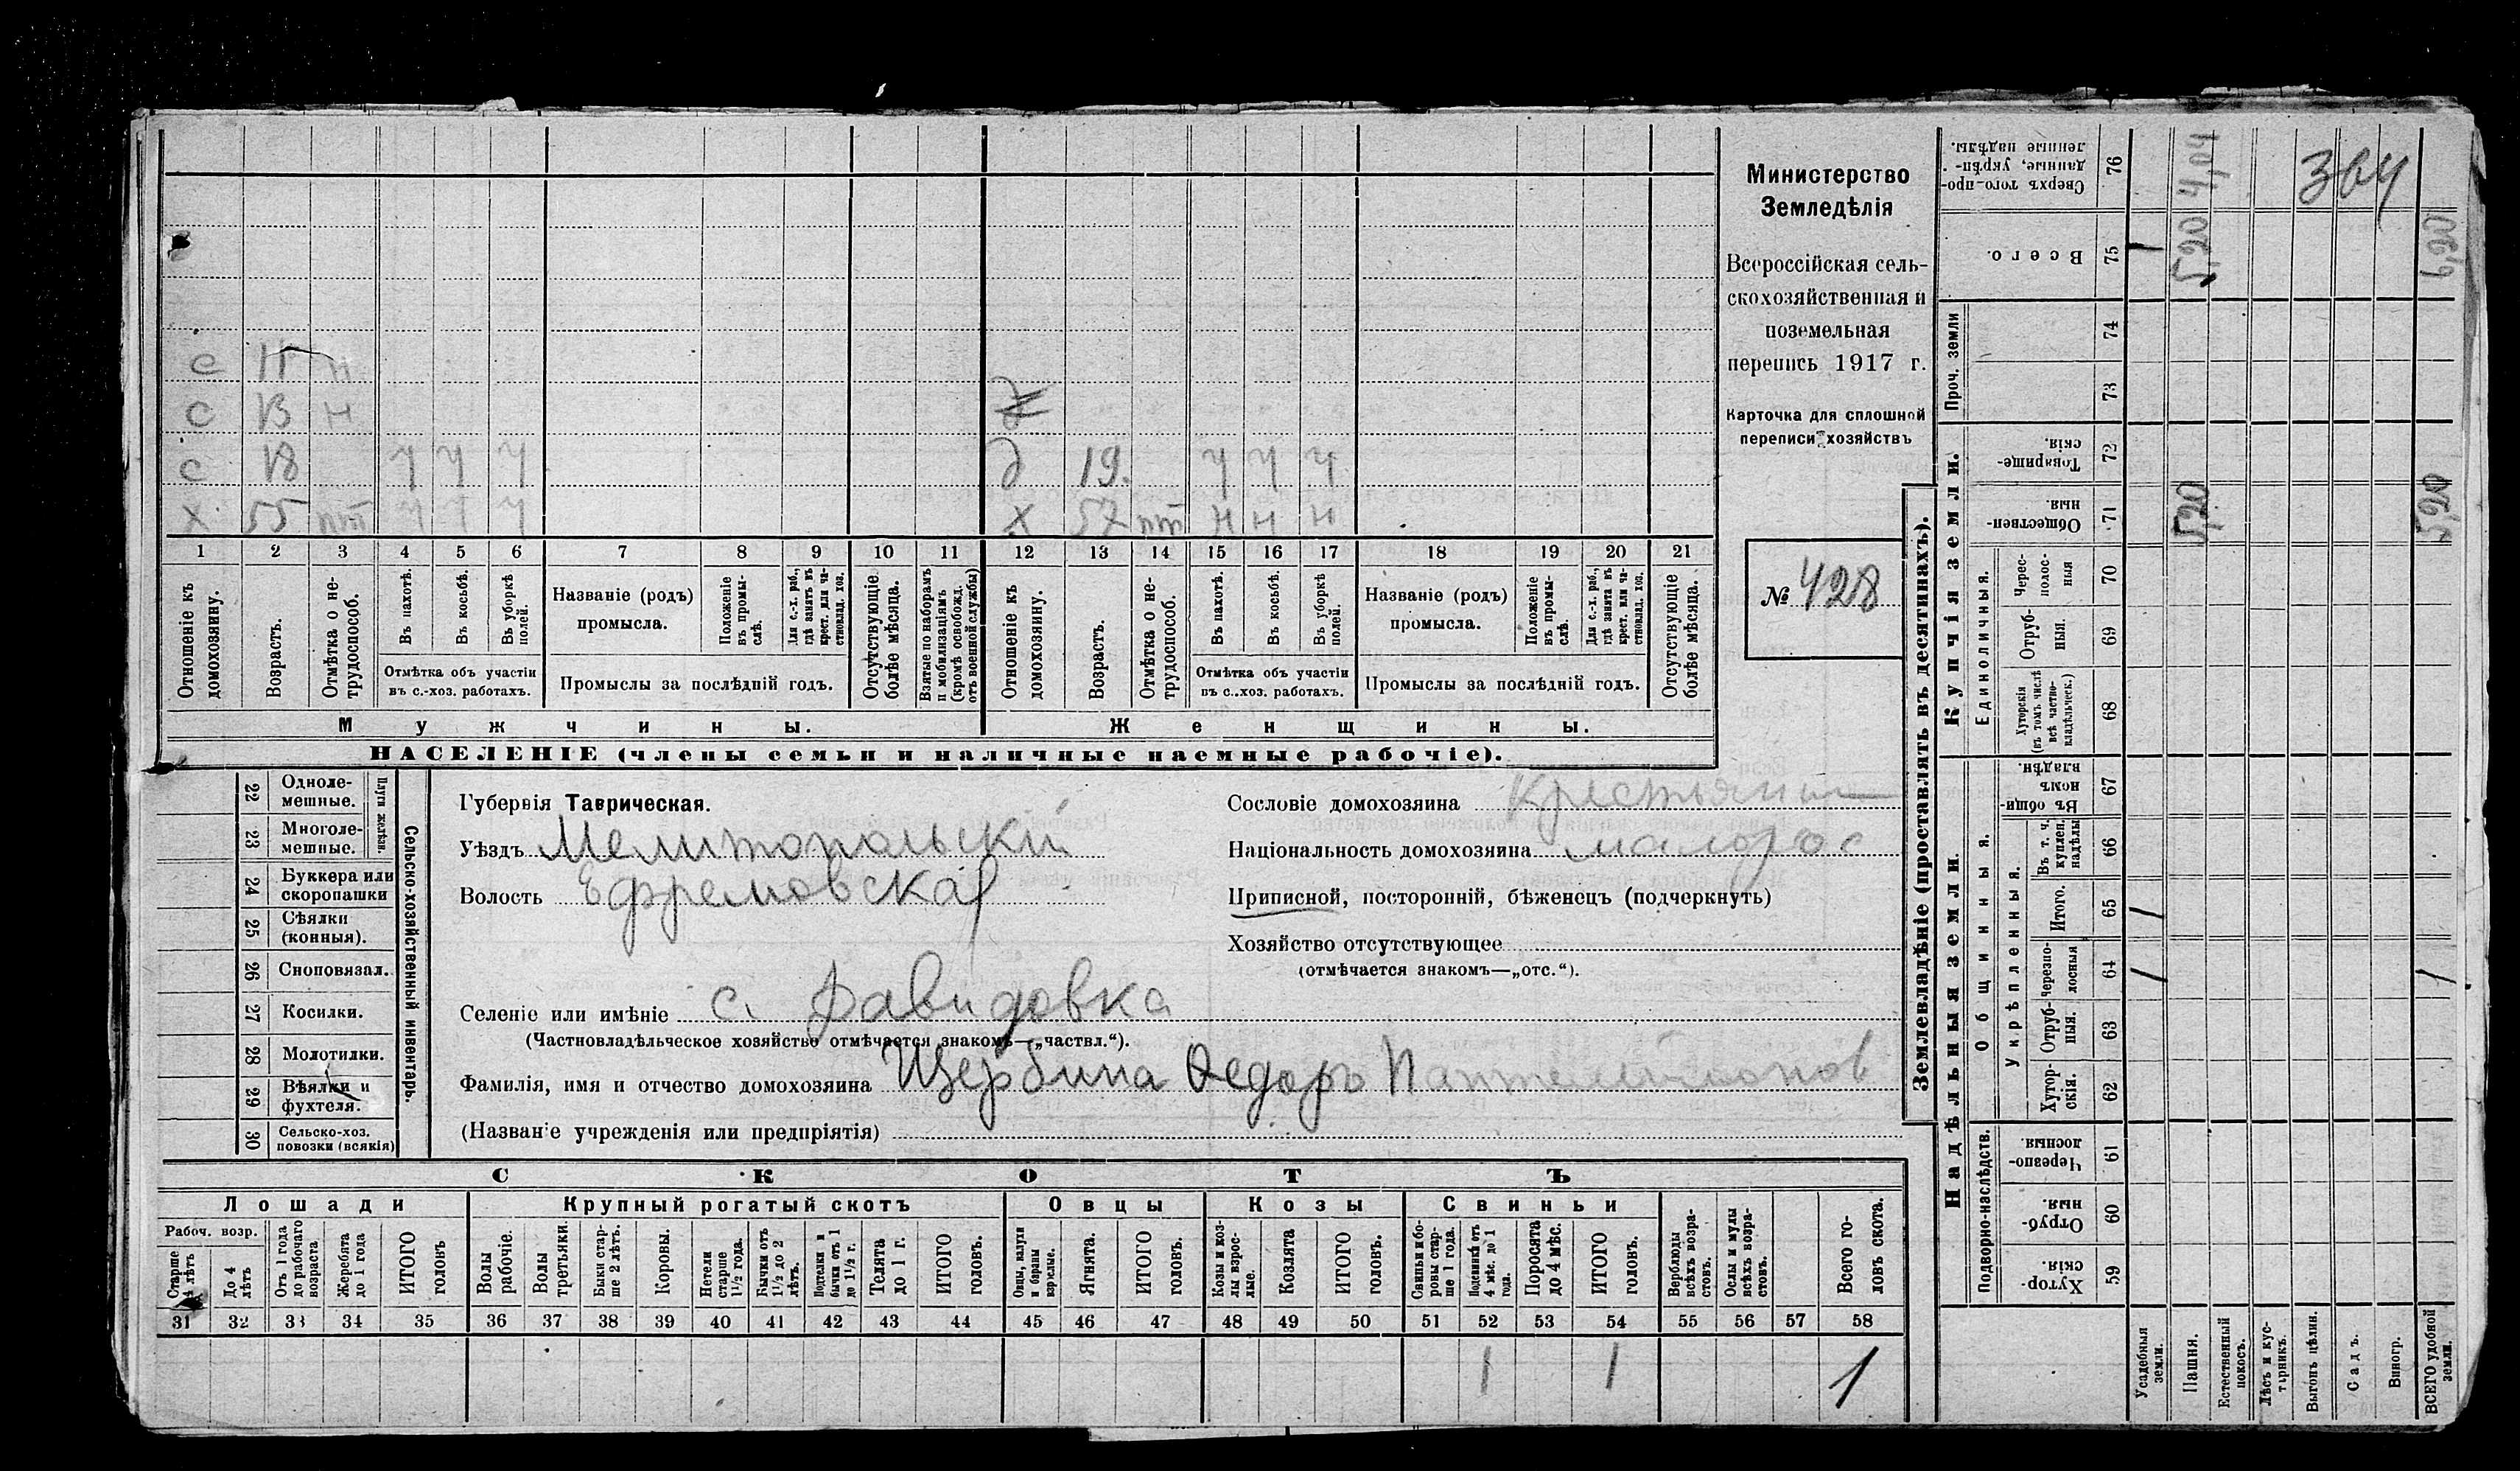 с 11 н
с 13 н
с 18 ч ч ч д 19. ч ч ч
х 55 пт ч ч ч х 57 пт н н н
1 2 3 4 5 6 7 8 9 10 11 12 13 14 15 16 17 18 19 20 21
Отношеніе къ домохозяину.
Возрастъ.
Отмѣтка о не-трудоспособ.
Въ пахотѣ.
Въ косьбѣ.
Въ уборкѣ полей.
Отмѣтка объ участіи
въ с.-хоз. работахъ.
Названіе (родъ)
промысла.
Положеніе въ промы-слѣ.
Для с.-х. раб., гдѣ занятъ въ крест. или ча-стновлад. хоз.
Промыслы за послѣдній годъ.
Отсутствующіе болѣе мѣсяца.
Взятые по наборамъ и мобилизаціямъ (кромѣ освобожд. отъ военной службы)
Отношеніе къ домохозяину.
Возрастъ.
Отмѣтка о не-трудоспособ.
Въ пахотѣ.
Въ косьбѣ.
Въ уборкѣ полей.
Отмѣтка объ участіи
въ с.-хоз. работахъ.
Названіе (родъ)
промысла.
Положеніе въ промы-слѣ.
Для с.-х. раб., гдѣ занята въ крест. или ча-стновлад. хоз.
Промыслы за послѣдній годъ.
Отсутствующіе болѣе мѣсяца.
Мужчины.
Женщины.
НАСЕЛЕНІЕ (члены семьи и наличные наемные рабочіе).
Министерство
Земледѣлія
Всероссійская сель-
скохозяйственная и
поземельная
перепись 1917 г.
Карточка для сплошной
переписи хозяйствъ
№ 428
22 Одноле-
мешные.
23 Многоле-
мешные.
Плуги желѣзн.
24 Буккера или
скоропашки
25 Сѣялки
(конныя).
26 Сноповязал.
27 Косилки.
28 Молотилки.
29 Вѣялки и
фухтеля.
30 Сельско-хоз.
повозки (всякія)
Сельско-хозяйственный инвентарь.
Губернія Таврическая.
Уѣздъ Мелитопольскій
Волость Ефремовская
Селеніе или имѣніе с. Давидовка
(Частновладѣльческое хозяйство отмѣчается знакомъ—„частвл.“).
Фамилія, имя и отчество домохозяина Щербина Федоръ Пантелеймонов
(Названіе учрежденія или предпріятія)
Сословіе домохозяина Крестьянин
Національность домохозяина малорос
Приписной, посторонній, бѣженецъ (подчеркнуть)
Хозяйство отсутствующее
(отмѣчается знакомъ—„отс.“).
СКОТЪ
Лошади Крупный рогатый скотъ Овцы Козы Свиньи
Рабоч. возр.
Старше 4 лѣтъ
До 4 лѣтъ
Отъ 1 года до рабочаго возраста
Жеребята до 1 года
ИТОГО головъ
Волы рабочіе.
Волы третьяки.
Быки стар-ше 2 лѣтъ.
Коровы.
Нетели старше 1½ года.
Бычки отъ 1½ до 2 лѣтъ.
Подтелки и бычки отъ 1 до 1½ г.
Телята до 1 г.
ИТОГО головъ.
Овцы, валухи и бараны взрослые.
Ягнята.
ИТОГО головъ.
Козы и коз-лы взрос-лые.
Козлята
ИТОГО головъ.
Свиньи и бо-ровы стар-ше 1 года.
Подсвинки отъ 4 мѣс. до 1 года.
Поросята до 4 мѣс.
ИТОГО головъ.
Верблюды всѣхъ возра-стовъ.
Ослы и мулы всѣхъ возра-стовъ.
Всего го-ловъ скота.
31 32 33 34 35 36 37 38 39 40 41 42 43 44 45 46 47 48 49 50 51 52 53 54 55 56 57 58
1 1 1
Землевладѣніе (проставлять въ десятинахъ).
Купчія земли.
Надѣльныя земли.
Сверхъ того-про-данные, укрѣп-ленные надѣлы. 76
364
4,04
Всего. 75
5,20
6,20
Проч. земли
74
73
Товарище-скія. 72
Обществен-ныя 71
5,20
5,20
Единоличныя.
Черес-полос-ныя 70
Отруб-ныя. 69
Хуторскія (въ томъ числѣ всѣ частно-владѣльческ.) 68
Общинныя.
Въ общин-номъ владѣн. 67
Укрѣпленныя.
Въ т. ч. куплен. надѣлы 66
Итого. 65
1
Черезпо-лосныя 64
1 1
Отруб-ныя. 63
Хутор-скія. 62
Подворно-наслѣдств.
Черезпо-лосныя. 61
Отруб-ныя. 60
Хутор-скія. 59
Усадебныя земли.
Пашня.
Естественный покосъ.
Лѣсъ и кус-тарникъ.
Выгонъ цѣлин.
Садъ.
Виногр.
ВСЕГО удобной земли.